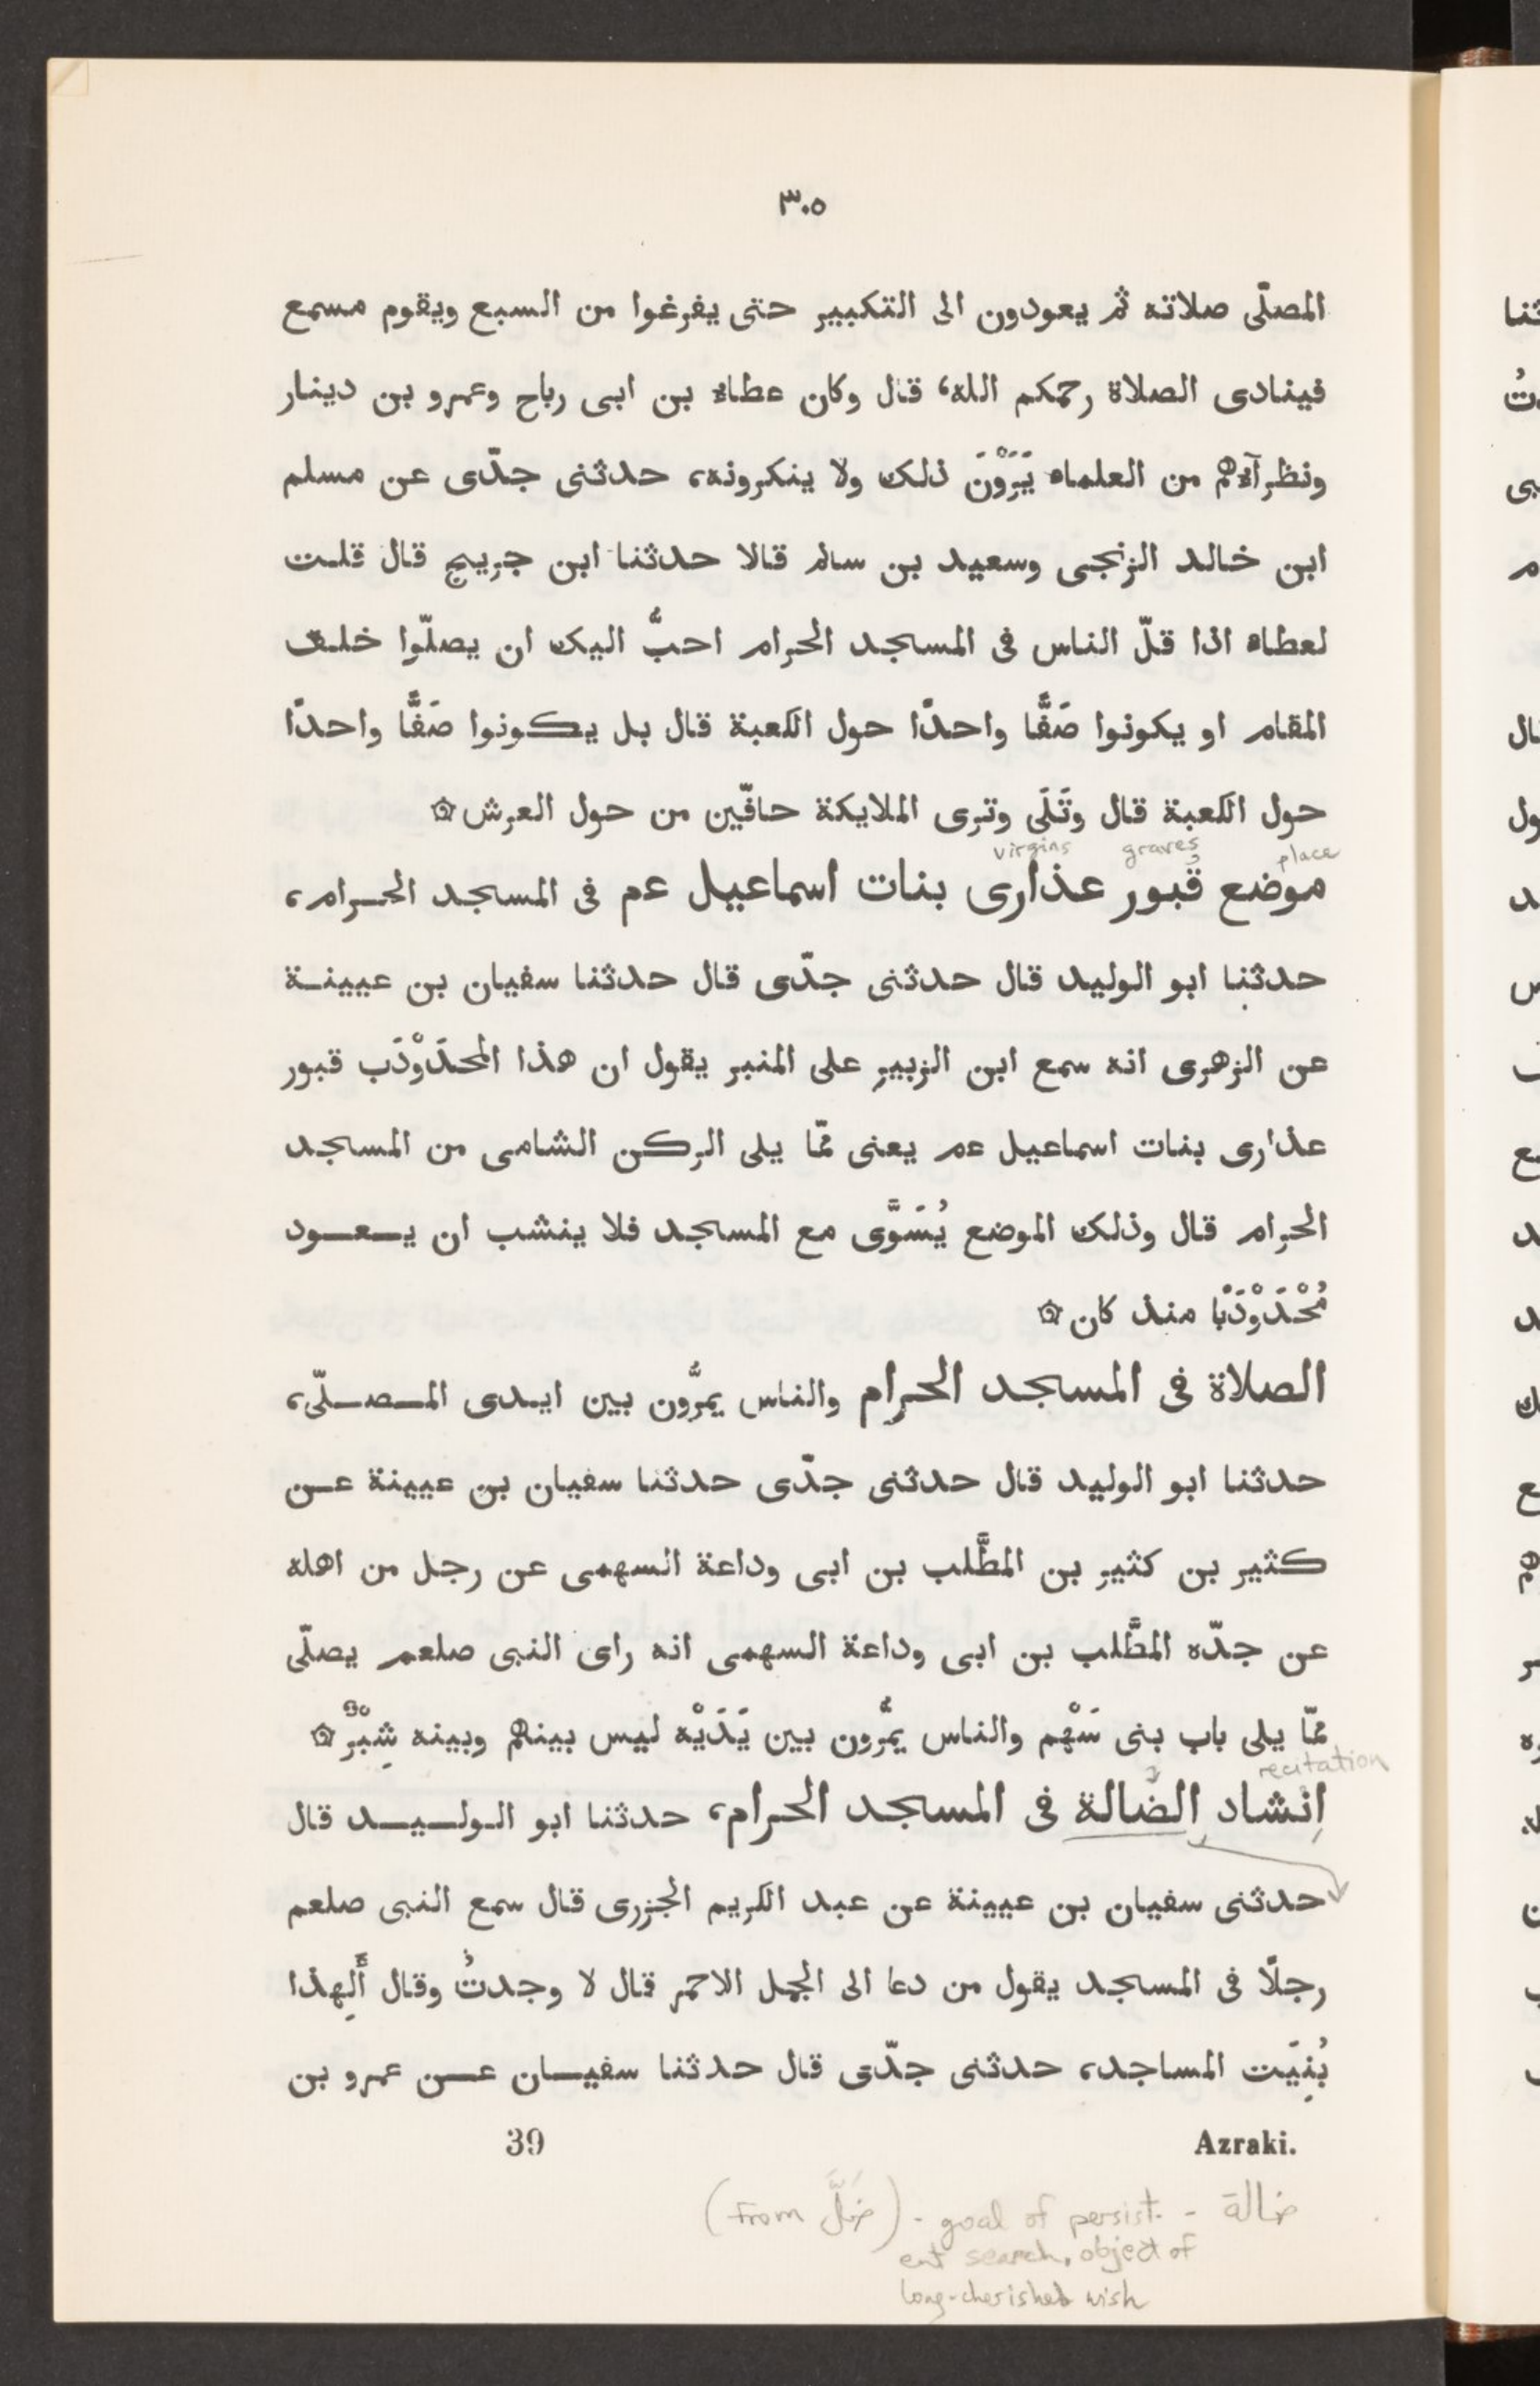 ٣٠٥
المصلّى صلاته ثم يعودون الى التكبير حتى يفرغوا من السبع ويقوم مسمع
فينادى الصلاة رحمكم الله، قال وكان عطاء بن ابى رباح وعمرو بن دينار
ونظرآءهم من العلماء يَرَوْنَ ذلك ولا ينكرونه، حدثنى جدّى عن مسلم
ابن خالد الزنجى وسعيد بن سالم قالا حدثنا ابن جريج قال قلت
لعطاء اذا قلّ الناس فى المسجد الحرام احبُّ اليك ان يصلّوا خلف
المقام او يكونوا صَفًّا واحدًا حول الكعبة قال بل يكونوا صَفًّا واحدًا
حول الكعبة قال وتَلَى وترى الملايكة حافّين من حول العرش ۞
virgins graves place
موضع قُبور عذارى بنات اسماعيل عم فى المسجد الحرام،
حدثنا ابو الوليد قال حدثنى جدّى قال حدثنا سفيان بن عيينة
عن الزهرى انه سمع ابن الزبير على المنبر يقول ان هذا المحدَوْدَب قبور
عذارى بنات اسماعيل عم يعنى ممّا يلى الركن الشامى من المسجد
الحرام قال وذلك الموضع يُسَوَّى مع المسجد فلا ينشب ان يعود
مُحْدَوْدَبًا منذ كان ۞
الصلاة فى المسجد الحرام والناس يمرُّون بين ايدى المصلّى،
حدثنا ابو الوليد قال حدثنى جدّى حدثنا سفيان بن عيينة عن
كثير بن كثير بن المطَّلب بن ابى وداعة السهمى عن رجل من اهله
عن جدّه المطَّلب بن ابى وداعة السهمى انه راى النبى صلعم يصلّى
ممّا يلى باب بنى سَهْم والناس يمُّرون بين يَدَيْه ليس بينهم وبينه شِبْرٌ ۞
recitation
اِنْشاد الضالة فى المسجد الحرام، حدثنا ابو الوليد قال
حدثنى سفيان بن عيينة عن عبد الكريم الجزرى قال سمع النبى صلعم
رجلًا فى المسجد يقول من دعا الى الجمل الاحمر قال لا وجدتُ وقال أَلِهذا
بُنِيَت المساجد، حدثنى جدّى قال حدثنا سفيان عن عمرو بن
39 Azraki.
ضالة - goal of persist- (from ضَلَّ)
ent search, object of
long-cherished wish